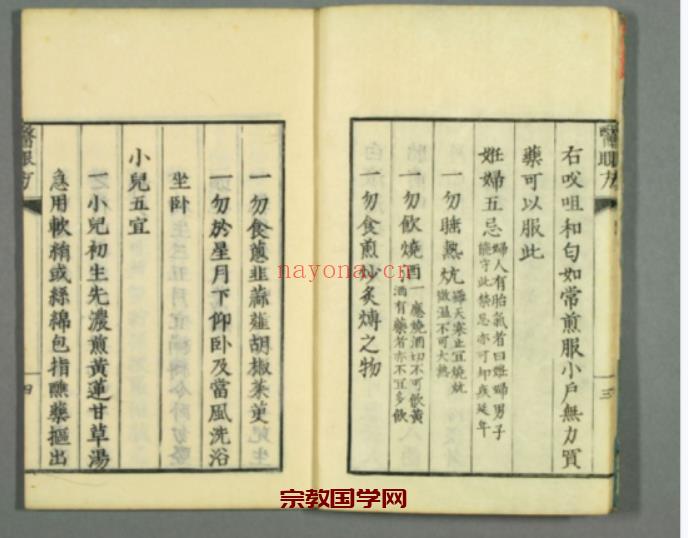 醫眼方
三
右㕮咀和匀如常煎服小戶無力買
藥可以服此
妊婦五忌
婦人有胎氣者曰妊婦男子
能守此禁忌亦可却疾延年
一勿睡熱炕
天寒止宜燒炕
微溫不可大熱
一勿飮燒酒
一應燒酒切不可飮黃
酒有藥者亦不宜多飮
一勿食煎炒炙煿之物
一勿食蔥韭蒜薤胡椒茱萸
一勿於星月下仰卧及當風洗浴
坐卧
小兒五宜
一小兒初生先濃煎黃蓮甘草湯
急用軟稍或絲綿包指蘸藥摳出
醫眼方
四
nayona.cn
宗教国学网